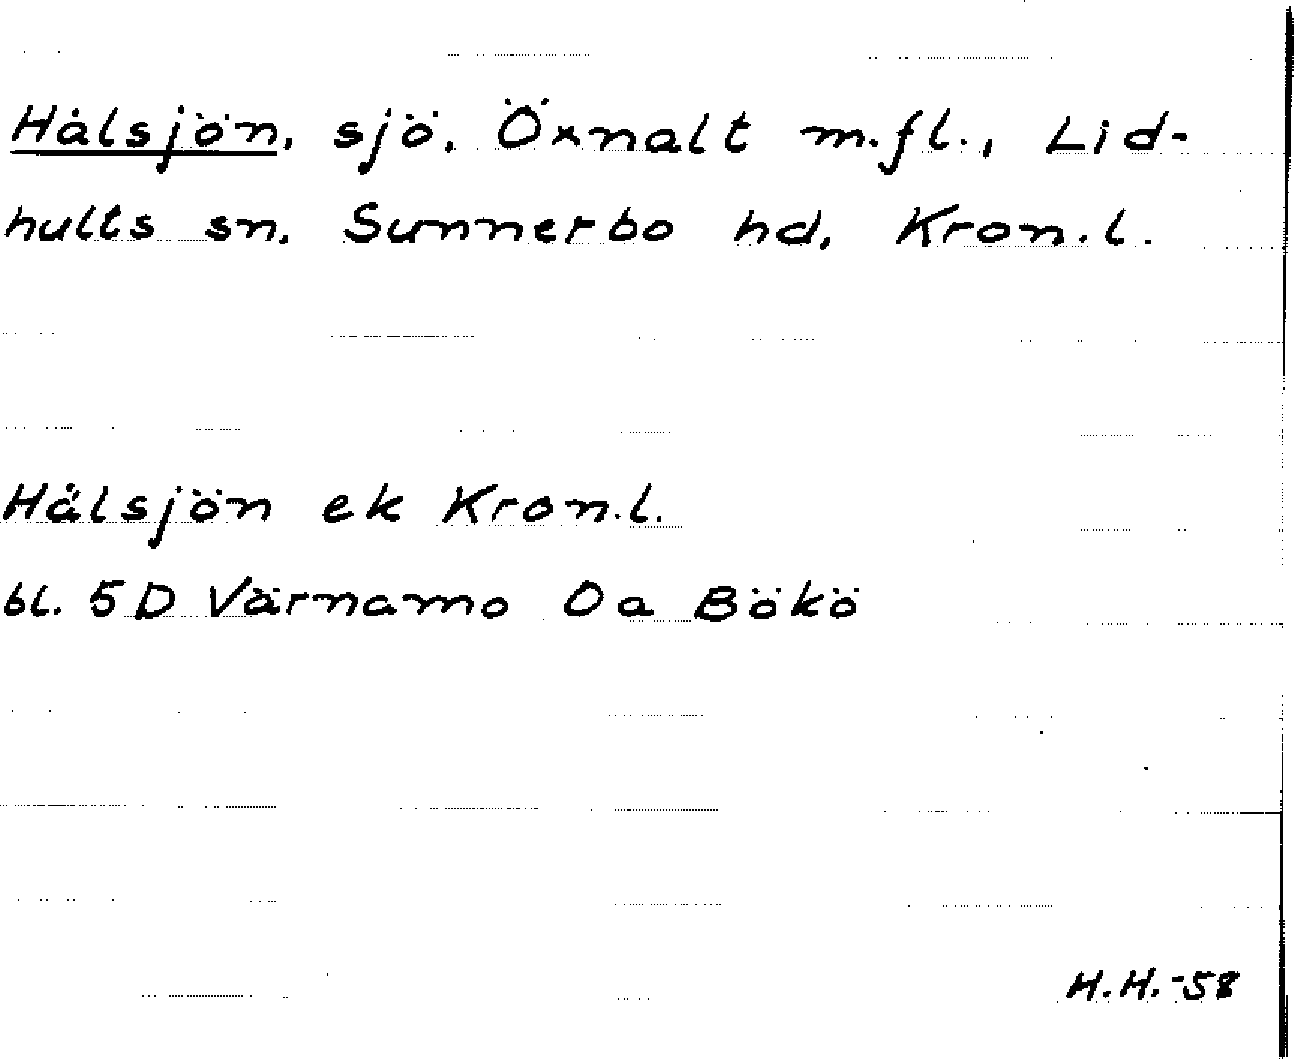 Hålsjön, sjö, Öxnalt m.fl., Lid-
hults sn, Sunnerbo hd, Kron.l.
Hålsjön ek Kron.l.
bl. 5D Värnamo 0a Bökö
H.H.-58